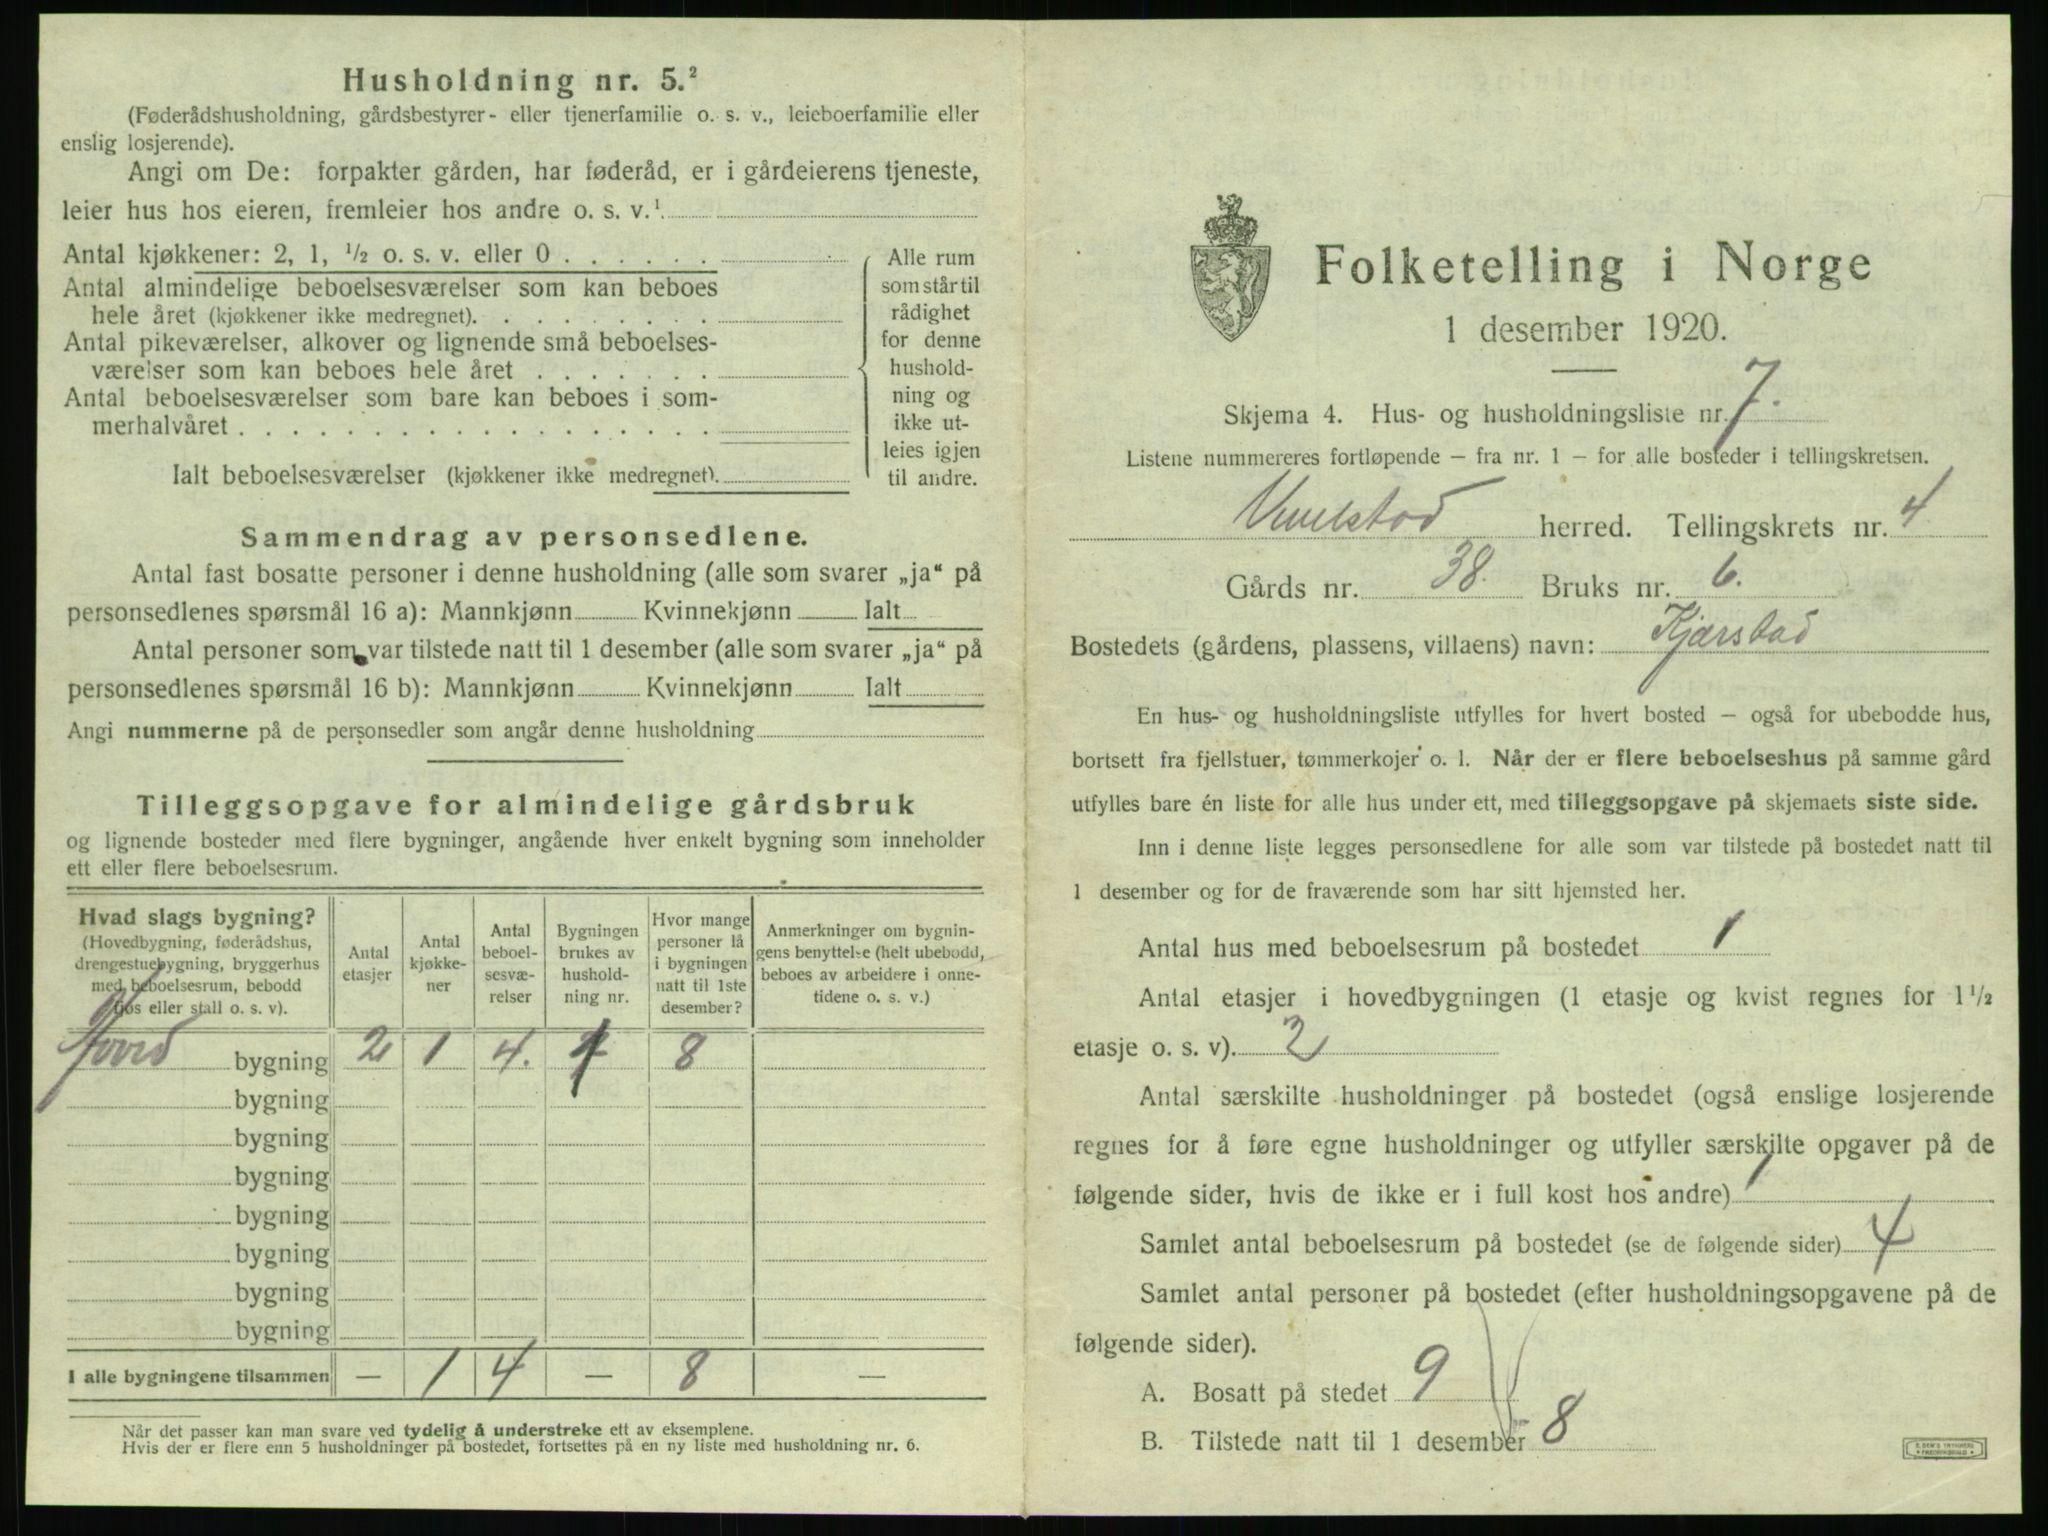 Husholdning nr. 5.²
(Føderådshusholdning, gårdsbestyrer- eller tjenerfamilie o. s. v., leieboerfamilie eller
enslig losjerende).
Angi om De: forpakter gården, har føderåd, er i gårdeierens tjeneste,
leier hus hos eieren, fremleier hos andre o. s. v.¹
Antal kjøkkener: 2, 1, ½ o. s. v. eller 0 . . . . . .
Antal almindelige beboelsesværelser som kan beboes
hele året (kjøkkener ikke medregnet). . . . . . . . .
Antal pikeværelser, alkover og lignende små beboelses-
værelser som kan beboes hele året . . . . . . .
Antal beboelsesværelser som bare kan beboes i som-
merhalvåret . . . . . . . . . . . . . . . . . .
Ialt beboelsesværelser (kjøkkener ikke medregnet).
Alle rum
som står til
rådighet
for denne
hushold-
ning og
ikke ut-
leies igjen
til andre.
Sammendrag av personsedlene.
Antal fast bosatte personer i denne husholdning (alle som svarer „ja“ på
personsedlenes spørsmål 16 a): Mannkjønn Kvinnekjønn Ialt
Antal personer som var tilstede natt til 1 desember (alle som svarer „ja“ på
personsedlenes spørsmål 16 b): Mannkjønn Kvinnekjønn Ialt
Angi nummerne på de personsedler som angår denne husholdning
Tilleggsopgave for almindelige gårdsbruk
og lignende bosteder med flere bygninger, angående hver enkelt bygning som inneholder
ett eller flere beboelsesrum.
Hvad slags bygning?
(Hovedbygning, føderådshus,
drengestuebygning, bryggerhus
med beboelsesrum, bebodd
fjøs eller stall o. s. v).
Antal
etasjer
Antal
kjøkke-
ner
Antal
beboel-
sesvæ-
relser
Bygningen
brukes av
hushold-
ning nr.
Hvor mange
personer lå
i bygningen
natt til 1ste
desember?
Anmerkninger om bygnin-
gens benyttelse (helt ubebodd,
beboes av arbeidere i onne-
tidene o. s. v.)
Hoved bygning 2 1 4. 1 8
bygning
bygning
bygning
bygning
bygning
bygning
bygning
I alle bygningene tilsammen — 1 4 — 8 —
Når det passer kan man svare ved tydelig å understreke ett av eksemplene.
Hvis der er flere enn 5 husholdninger på bostedet, fortsettes på en ny liste med husholdning nr. 6.
Folketelling i Norge
1 desember 1920.
Skjema 4. Hus- og husholdningsliste nr. 7.
Listene nummereres fortløpende – fra nr. 1 – for alle bosteder i tellingskretsen.
Vevelstad herred. Tellingskrets nr. 4
Gårds nr. 38. Bruks nr. 6.
Bostedets (gårdens, plassens, villaens) navn: Kjærstad
En hus- og husholdningsliste utfylles for hvert bosted – også for ubebodde hus,
bortsett fra fjellstuer, tømmerkojer o. l. Når der er flere beboelseshus på samme gård
utfylles bare én liste for alle hus under ett, med tilleggsopgave på skjemaets siste side.
Inn i denne liste legges personsedlene for alle som var tilstede på bostedet natt til
1 desember og for de fraværende som har sitt hjemsted her.
Antal hus med beboelsesrum på bostedet 1
Antal etasjer i hovedbygningen (1 etasje og kvist regnes for 1½
etasje o. s. v). 2
Antal særskilte husholdninger på bostedet (også enslige losjerende
regnes for å føre egne husholdninger og utfyller særskilte opgaver på de
følgende sider, hvis de ikke er i full kost hos andre) 1
Samlet antal beboelsesrum på bostedet (se de følgende sider) 4
Samlet antal personer på bostedet (efter husholdningsopgavene på de
følgende sider).
A. Bosatt på stedet 9
B. Tilstede natt til 1 desember 8